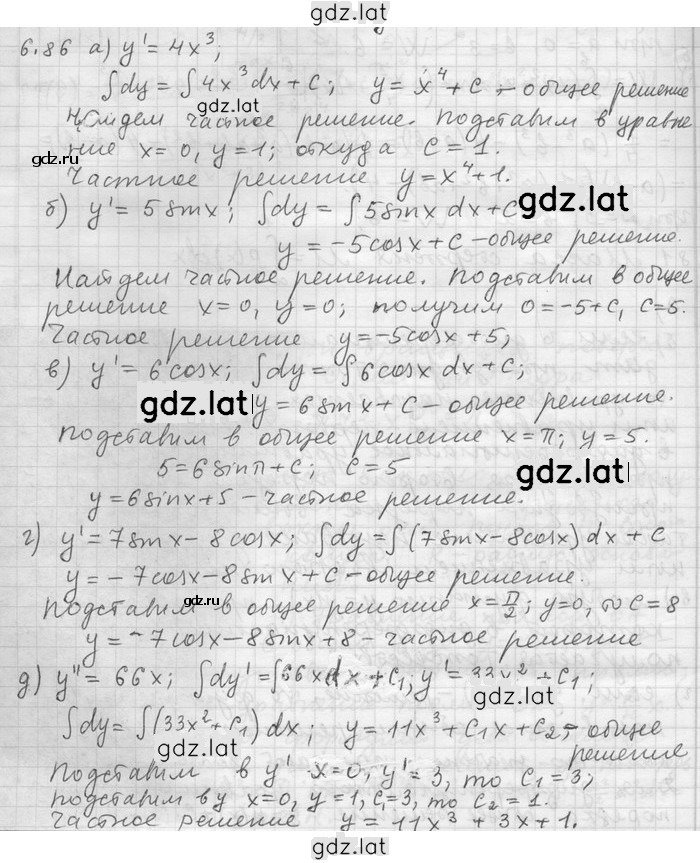 gdz.lat
6.86 а) y' = 4x³;
∫dy = ∫4x³dx + C; y = x⁴ + C – общее решение
gdz.lat
Найдем частное решение. Подставим в уравне-
gdz.ru
ние x = 0, y = 1; откуда C = 1.
Частное решение y = x⁴+1.
gdz.lat
б) y' = 5sinx; ∫dy = ∫5sinx dx + C
y = -5cosx + C – общее решение.
Найдем частное решение. Подставим в общее
решение x=0, y=0; получим 0=-5+C, C=5.
Частное решение y=-5cosx+5;
в) y' = 6cosx; ∫dy = ∫6cosx dx + C;
gdz.lat
y = 6sinx + C – общее решение.
Подставим в общее решение x=π; y=5.
5=6sinπ+C; C=5
gdz.lat
y=6sinx+5 – частное решение.
г) y' = 7sinx – 8cosx; ∫dy = ∫(7sinx – 8cosx)dx + C
y = - 7cosx – 8sinx + C – общее решение.
gdz.ru
Подставим в общее решение x = π/2; y=0, то C=8
y = -7cosx – 8sinx + 8 – частное решение
д) y'' = 66x; ∫dy' = ∫66x dx + C₁; y' = 33x² + C₁;
gdz.lat
∫dy = ∫(33x² + C₁)dx; y = 11x³ + C₁x + C₂ – общее
gdz.lat
решение
Подставим в y' x=0, y'=3, то C₁=3;
подставим в y x=0, y=1, C₁=3, то C₂=1.
Частное решение y = 11x³ + 3x + 1.
gdz.lat